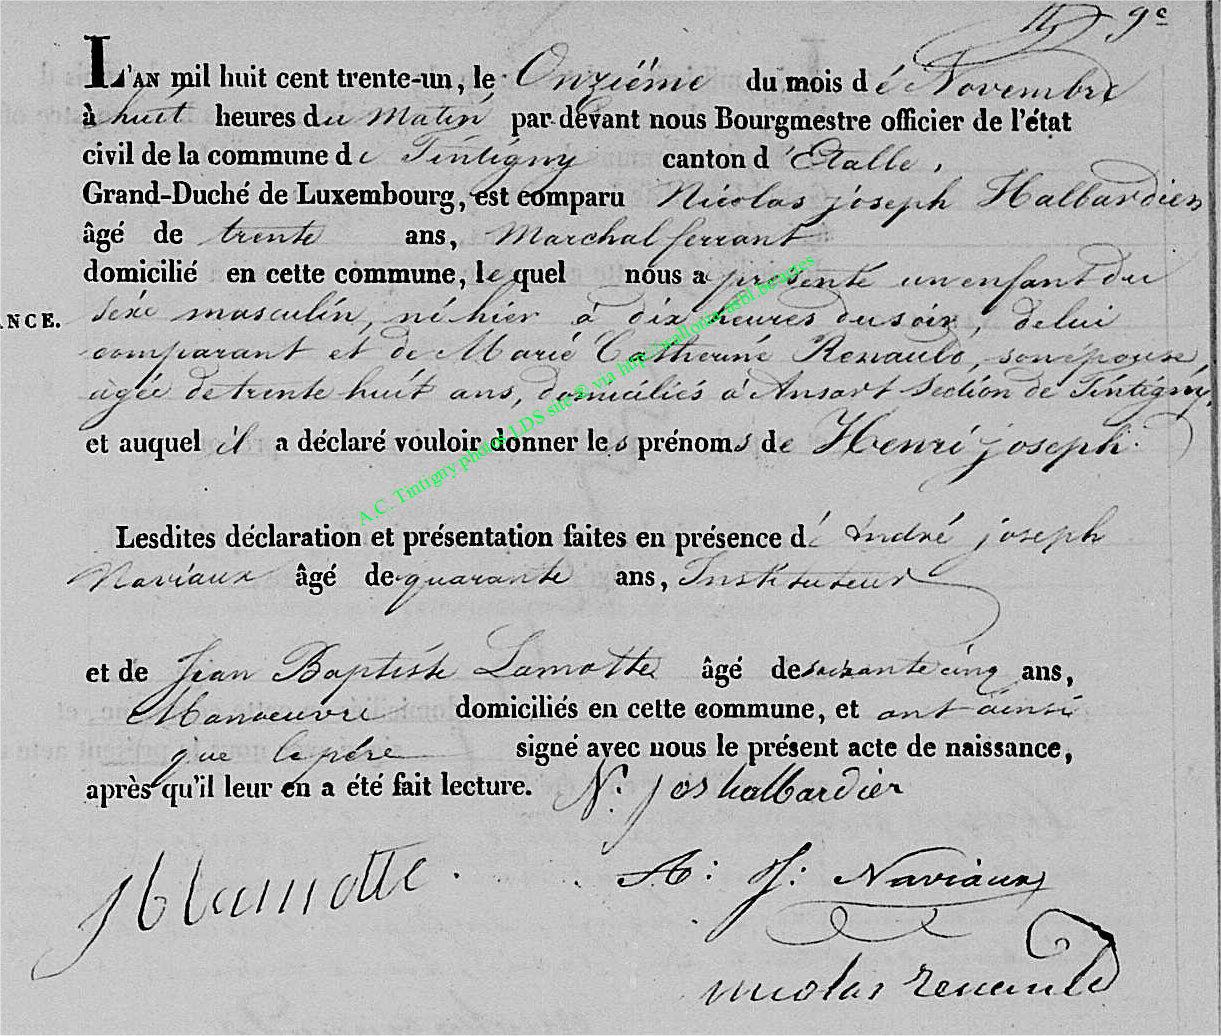 9e
L'AN mil huit cent trente-un, le Onziéme du mois dé Novembre
à huit heures du Matin par-devant nous Bourgmestre officier de l'état
civil de la commune de Tintigny canton d'Etalle,
Grand-Duché de Luxembourg, est comparu Nicolas joseph Halbardier
âgé de trente ans, Marchal ferrant
domicilié en cette commune, lequel nous a présenté un enfant du
ANCE. séxe masculin, né hier à dix heures du soir, de lui
comparant et de Marié Catherine Renauld, son epouse
agée de trente huit ans, domiciliés à Ansart Section de Tintigny,
et auquel il a déclaré vouloir donner les prénoms de Henri joseph.
A.C. Tintigny photos LDS site © via http://wallonia.asbl.be/actes
Lesdites déclaration et présentation faites en présence dé André joseph
Naviaux âgé de quarante ans, Instituteur
et de Jean Baptiste Lamotte âgé de soixante cinq ans,
Manoeuvre domiciliés en cette commune, et ont ainsi
que le pére signé avec nous le présent acte de naissance,
après qu'il leur en a été fait lecture. N. jos halbardier
JB lamotte. A: J: Naviaux
nicolas renauld